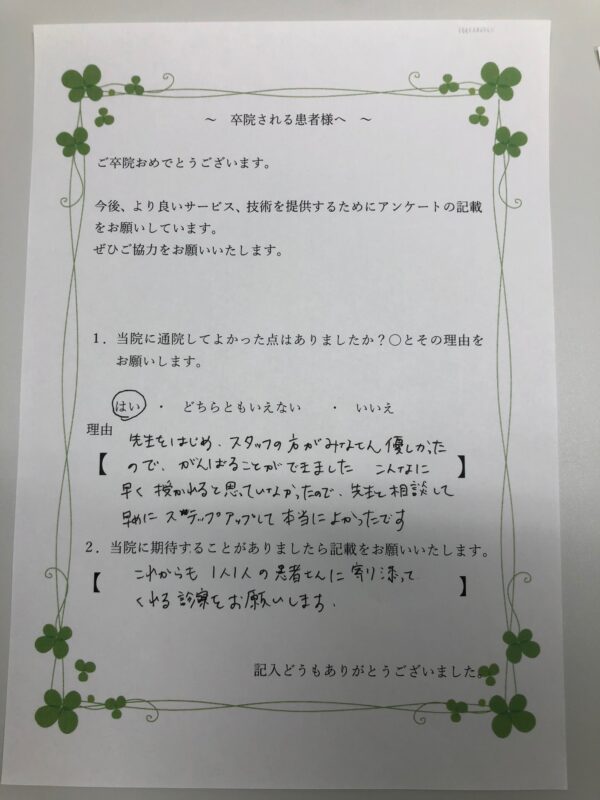 ～ 卒院される患者様へ ～
ご卒院おめでとうございます。
今後、より良いサービス、技術を提供するためにアンケートの記載
をお願いしています。
ぜひご協力をお願いいたします。
1．当院に通院してよかった点はありましたか？〇とその理由を
お願いします。
はい ・ どちらともいえない ・ いいえ
理由
【 先生をはじめ、スタッフの方がみなさん優しかった
ので、がんばることができました こんなに 】
早く授かれると思っていなかったので、先生と相談して
早めにステップアップして本当によかったです
2．当院に期待することがありましたら記載をお願いいたします。
【 これからも1人1人の患者さんに寄り添って 】
くれる診察をお願いします.
記入どうもありがとうございました。